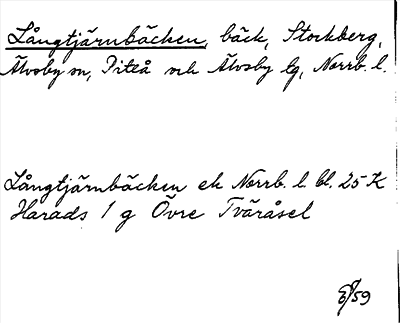 Långtjärnbäcken, bäck, Stockberg,
Älvsby sn, Piteå och Älvsby tg, Norrb. l.
Långtjärnbäcken ek Norrb. l. bl. 25 K
Harads 1 g Övre Tväråsel
/59